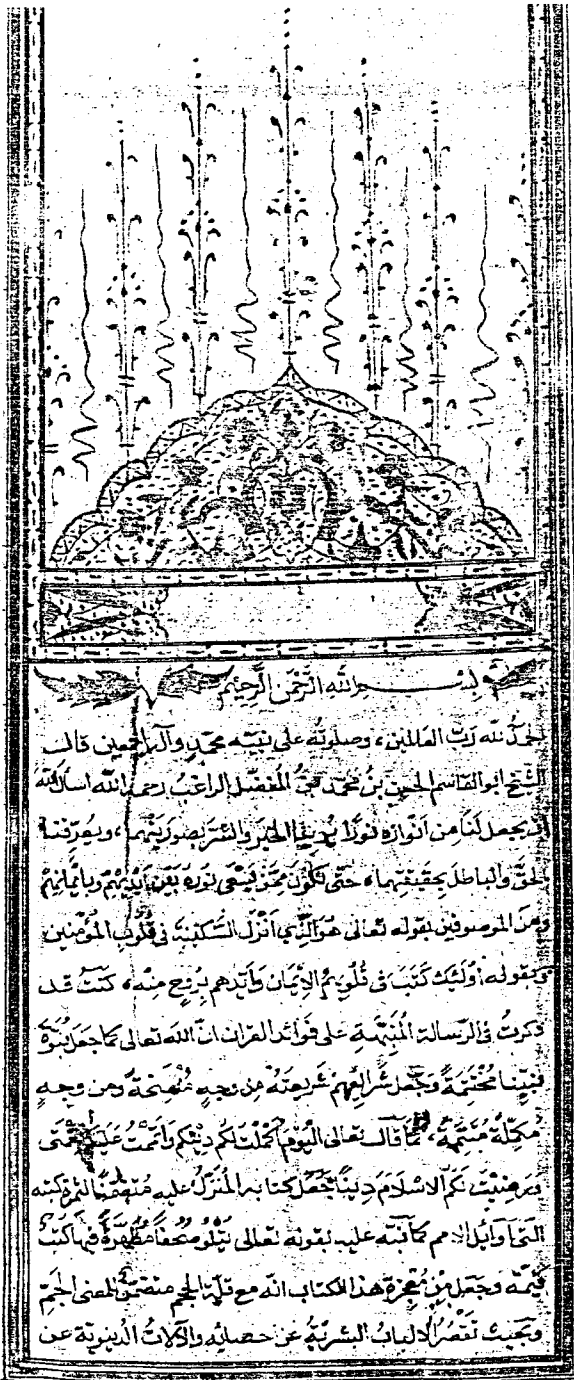 بسم الله الرحمن الرحيم
الحمد لله رب العالمين، وصلوته على نبيه محمد وآله اجمعين قال
الشيخ ابو القاسم الحسين بن محمد بن المفضل الراغب رحمه الله اسأل الله
ان يجعل لنا من انواره نورًا يرينا الخير والشر بصورتيهما، ويعرفنا
الحق والباطل بحقيقتهما، حتى نكون ممن يسعى نوره بين أيديهم وبأيمانهم
ومن الموصوفين بقوله تعالى هو الذي أنزل السكينة في قلوب المؤمنين
وبقوله أولئك كتب في قلوبهم الإيمان وأيدهم بروح منه، كنت قد
ذكرت في الرسالة المنبهة على فوائد القران ان الله تعالى كما جعل نبوة
نبينا مختتمة وجعل شرائعهم بشريعته من وجه منتسخة ومن وجه
مكملة متممة، كما قال تعالى اليوم أكملت لكم دينكم وأتممت عليكم نعمتي
ورضيت لكم الاسلام دينًا جعل كتابه المنزل عليه متضمنًا لثمرة كتبه
التي اوائل الامم كما نبه عليه بقوله تعالى يتلو صحفًا مطهرة فيها كتب
قيمة وجعل من معجزة هذا الكتاب انه مع قلة الحجم متضمن للمعنى الجم
وبحيث تقصر الالباب البشرية عن احصائه والآلات الدنيوية عن